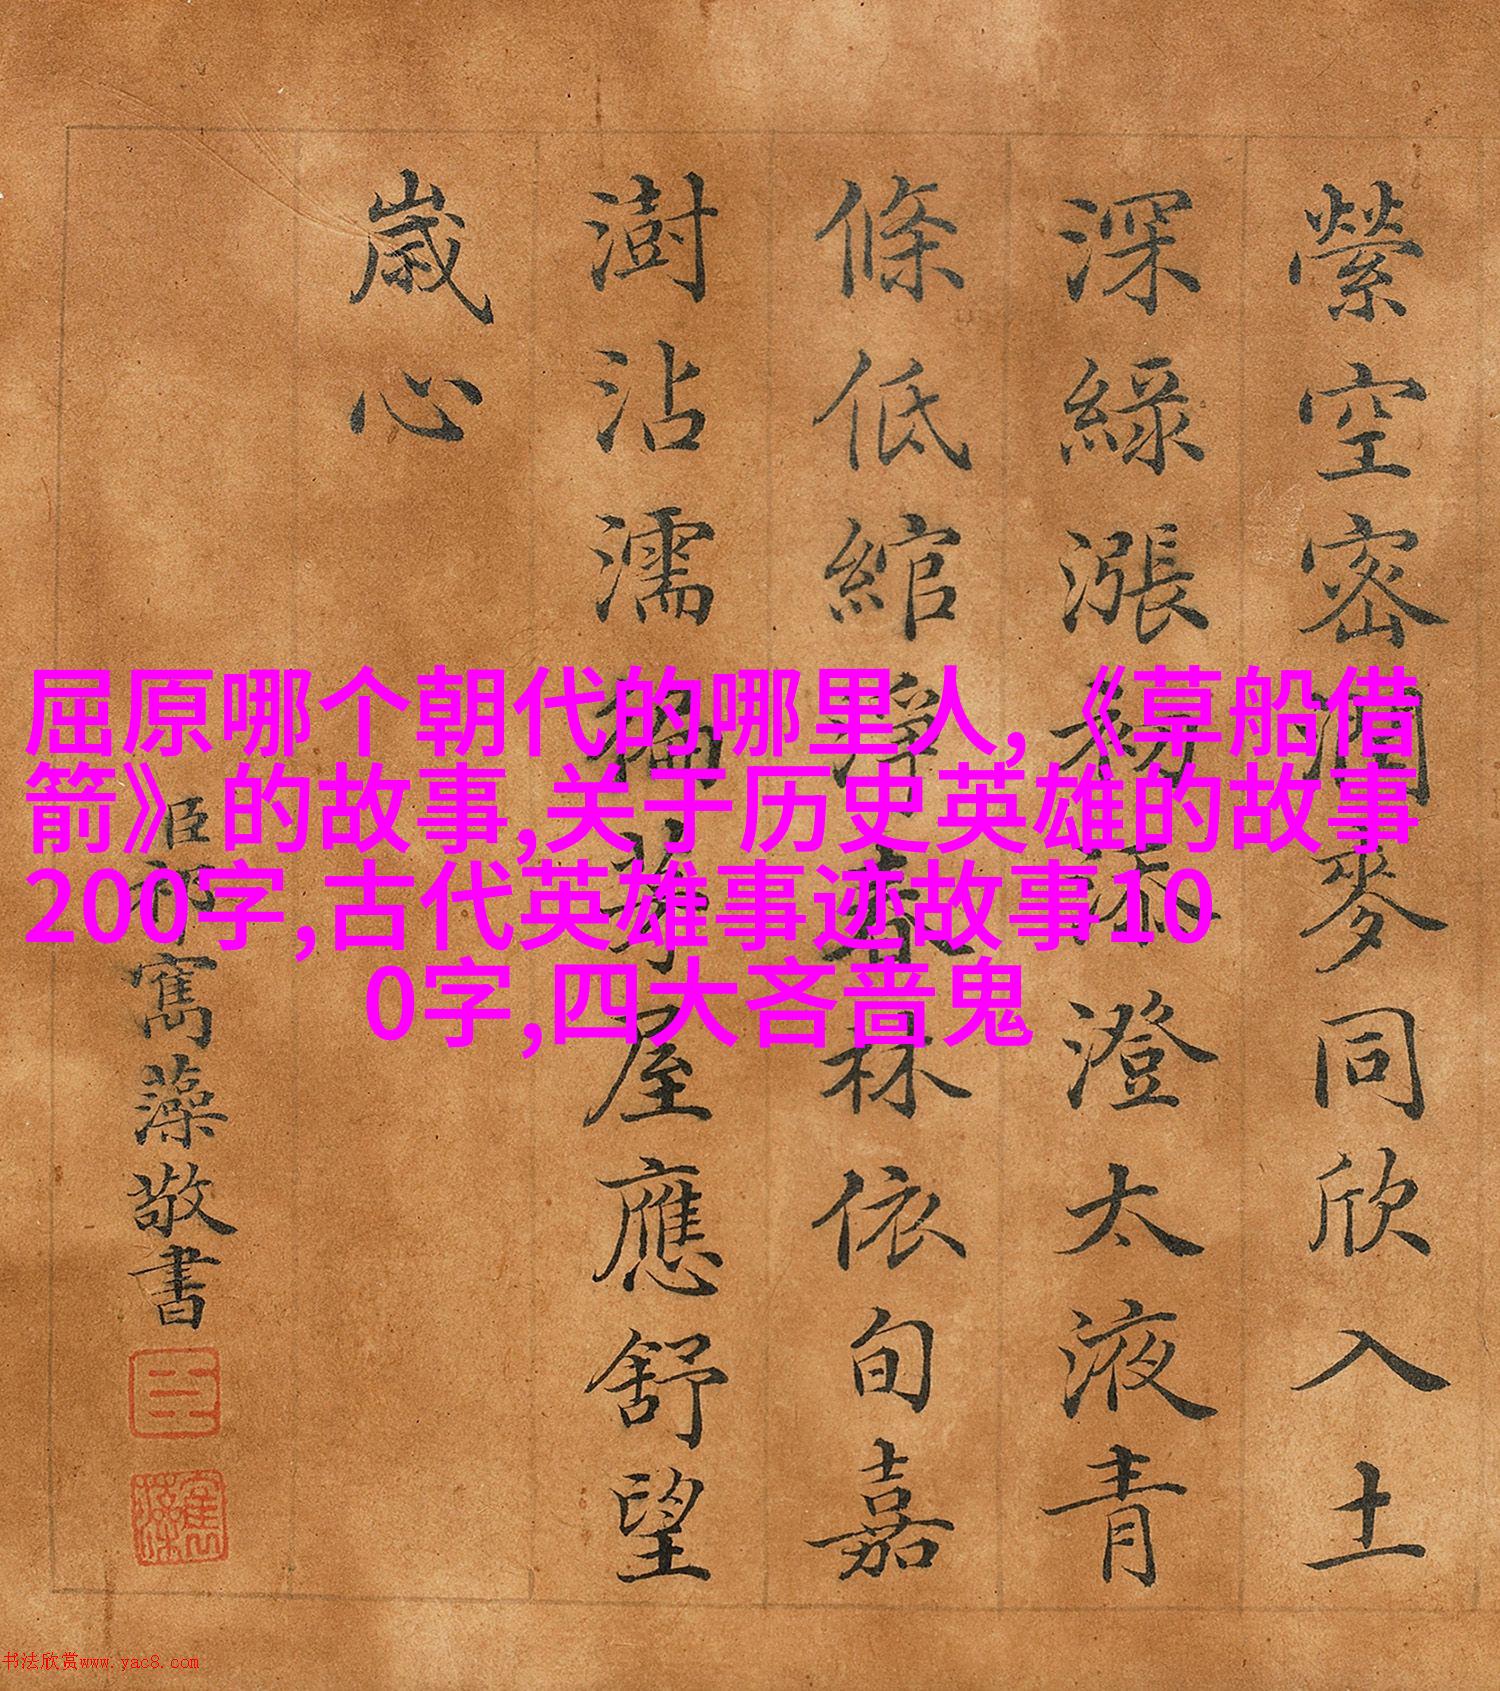 屈原哪个朝代的哪里人,《草船借
箭》的故事,关于历史英雄的故事
200字,古代英雄事迹故事10
0字,四大吝啬鬼
縈空密潤麥同欣入土
深綠漲初添澄太液青
條低綰淨林依旬嘉
澍沾濡茅屋應舒望
歲心
臣祁寯藻敬書
臣
寯藻
书法欣赏www.yac8.com